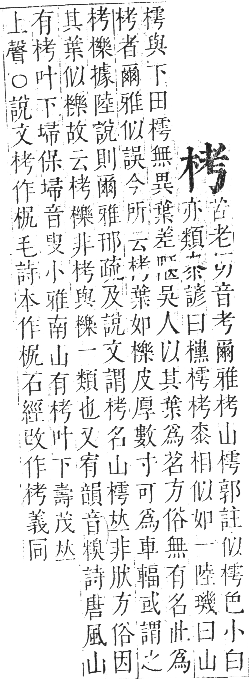 栲
苦老切音考爾雅栲山樗郭註似樗色小白
亦類桼諺曰櫄樗栲桼相似如一陸璣曰山
樗與下田樗無異葉差陿吳人以其葉爲茗方俗無有名此爲
栲者爾雅似誤今所云栲葉如櫟皮厚數寸可爲車輻或謂之
栲櫟據陸說則爾雅邢疏及說文謂栲名山樗𠀤非狀方俗因
其葉似櫟故云栲櫟非栲與櫟一類也又宥韻音糗詩唐風山
有栲叶下埽保埽音叟小雅南山有栲叶下壽茂𠀤
上聲○說文栲作𣐊毛詩本作𣐊石經改作栲義同